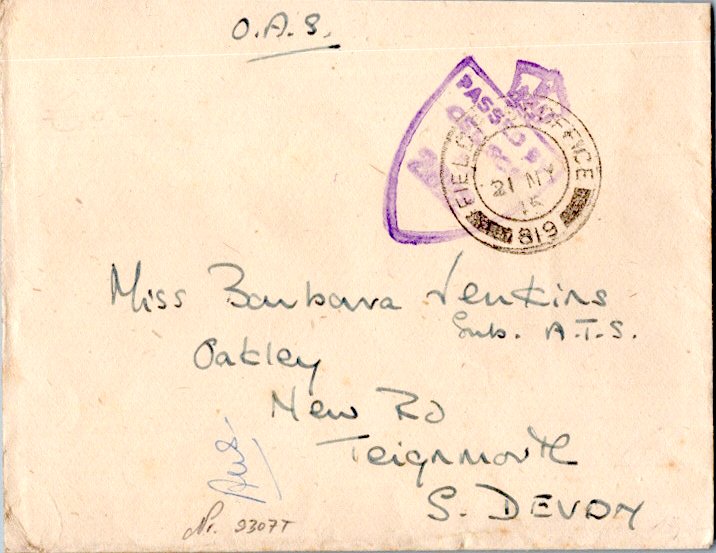 O.A.S.
PASSED BY
FIELD POST OFFICE
21 MY
45
819
Miss Barbara Jenkins
Sub. A.T.S.
Oakley
New RD
Teignmouth
S. DEVON
Ans.
Nr. 9307T